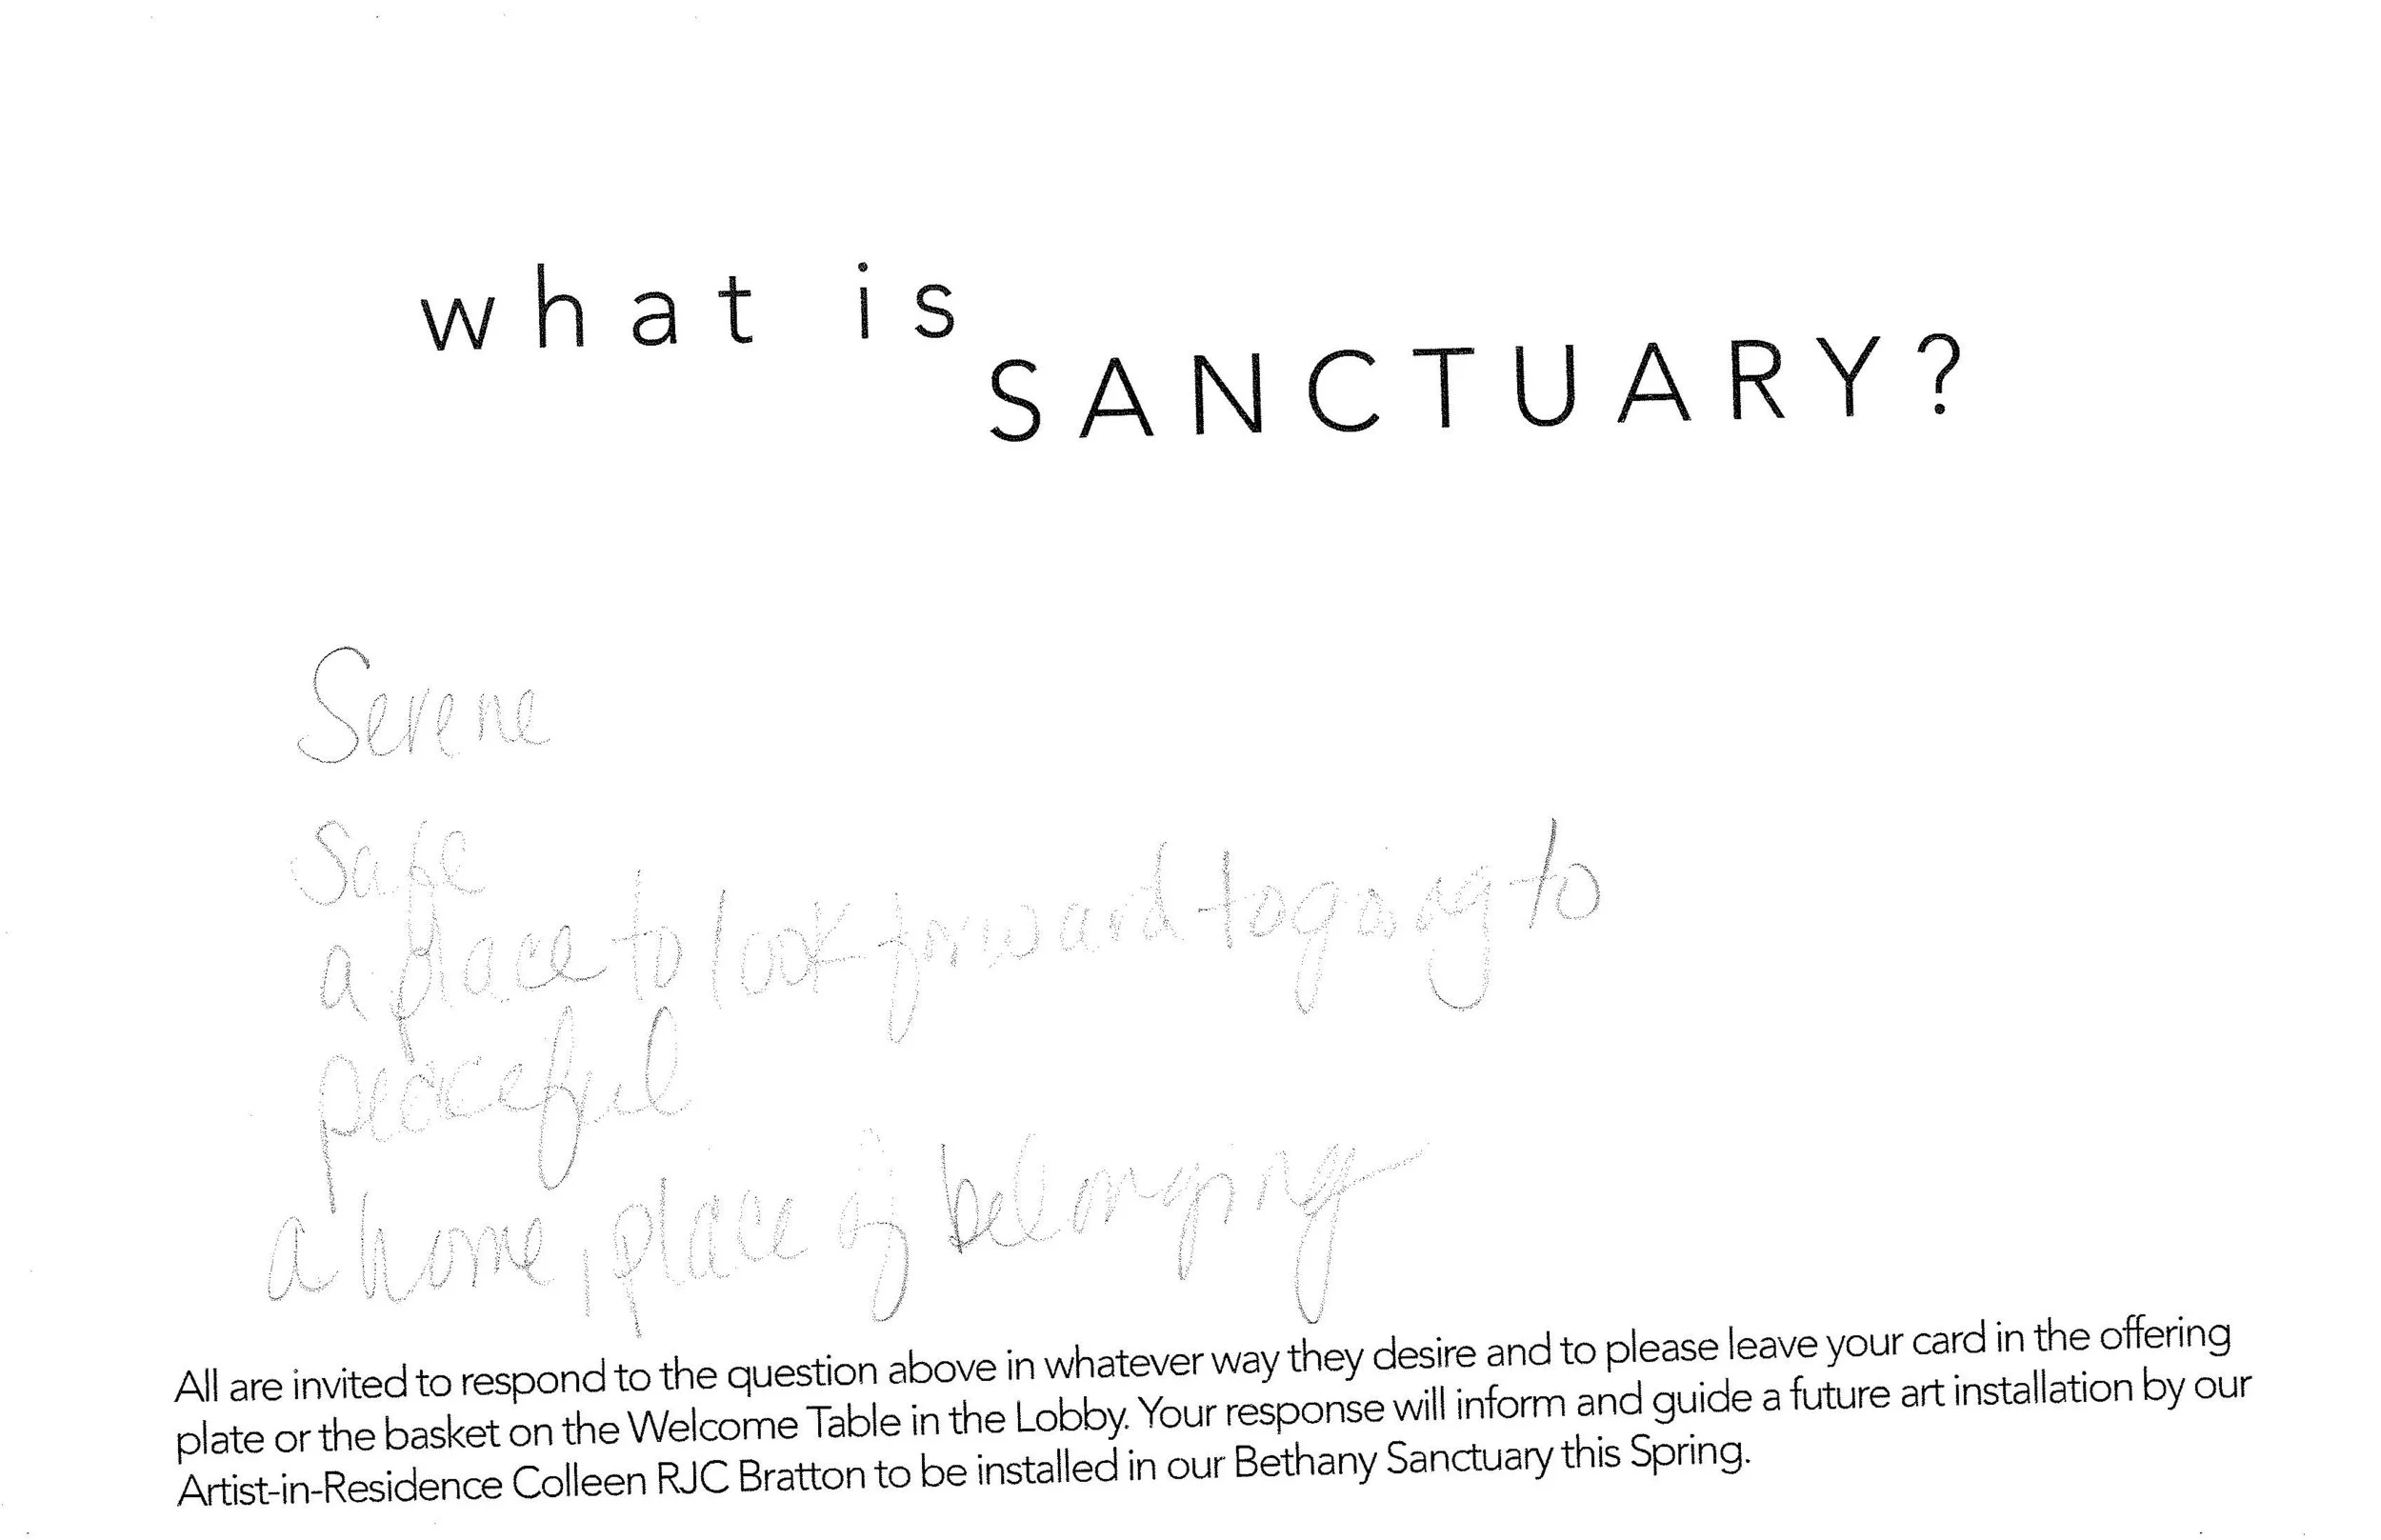 what is
SANCTUARY?
Serene
Safe
a place to look forward to going to
peaceful
a home, place of belonging
All are invited to respond to the question above in whatever way they desire and to please leave your card in the offering
plate or the basket on the Welcome Table in the Lobby. Your response will inform and guide a future art installation by our
Artist-in-Residence Colleen RJC Bratton to be installed in our Bethany Sanctuary this Spring.